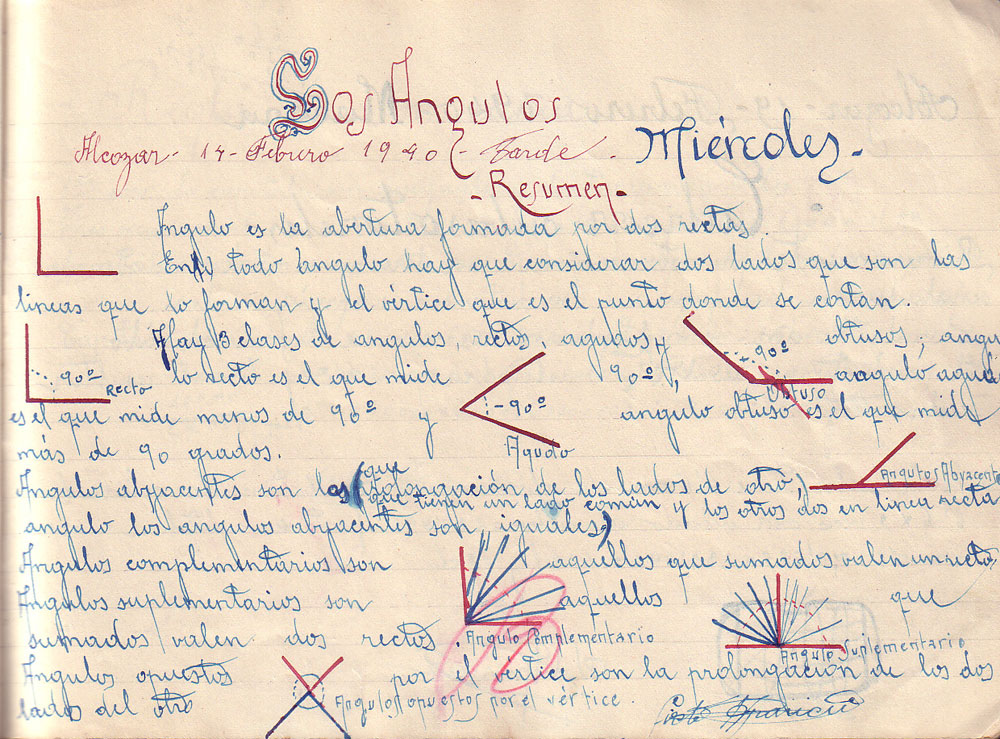 Los Angulos
Alcozar - 14 - Febrero 1940 - Tarde. Miércoles.
- Resumen. -
Angulo es la abertura formada por dos rectas.
En todo angulo hay que considerar dos lados que son las
lineas que lo forman y el vértice que es el punto donde se cortan.
Hay 3 clases de angulos, rectos, agudos y obtusos; angu
lo recto es el que mide 90º, angulo agudo
90º Recto
90º Obtuso
es el que mide menos de 90º y angulo obtuso es el que mide
- 90º Agudo
más de 90 grados.
Angulos abyacentes son los (que prolongación de los lados de otro,)
Angulos Abyacente
que tienen un lado común y los otros dos en linea recta
angulo los angulos abyacentes son iguales)
Angulos complementarios son aquellos que sumados valen un recto
Angulos suplementarios son aquellos que
sumados valen dos rectos.
Angulo Complementario
Angulo Suplementario
Angulos opuestos por el vertice son la prolongación de los dos
lados del otro
Angulos opuestos por el vértice.